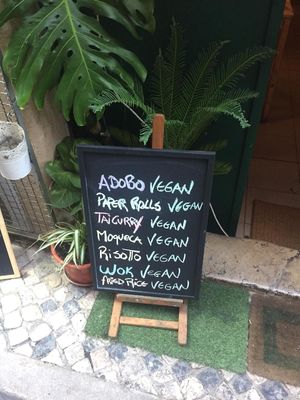 ADOBO VEGAN
PAPER ROLLS VEGAN
TAICURRY VEGAN
MOQUECA VEGAN
RISOTTO VEGAN
WOK VEGAN
FRIED RICE VEGAN